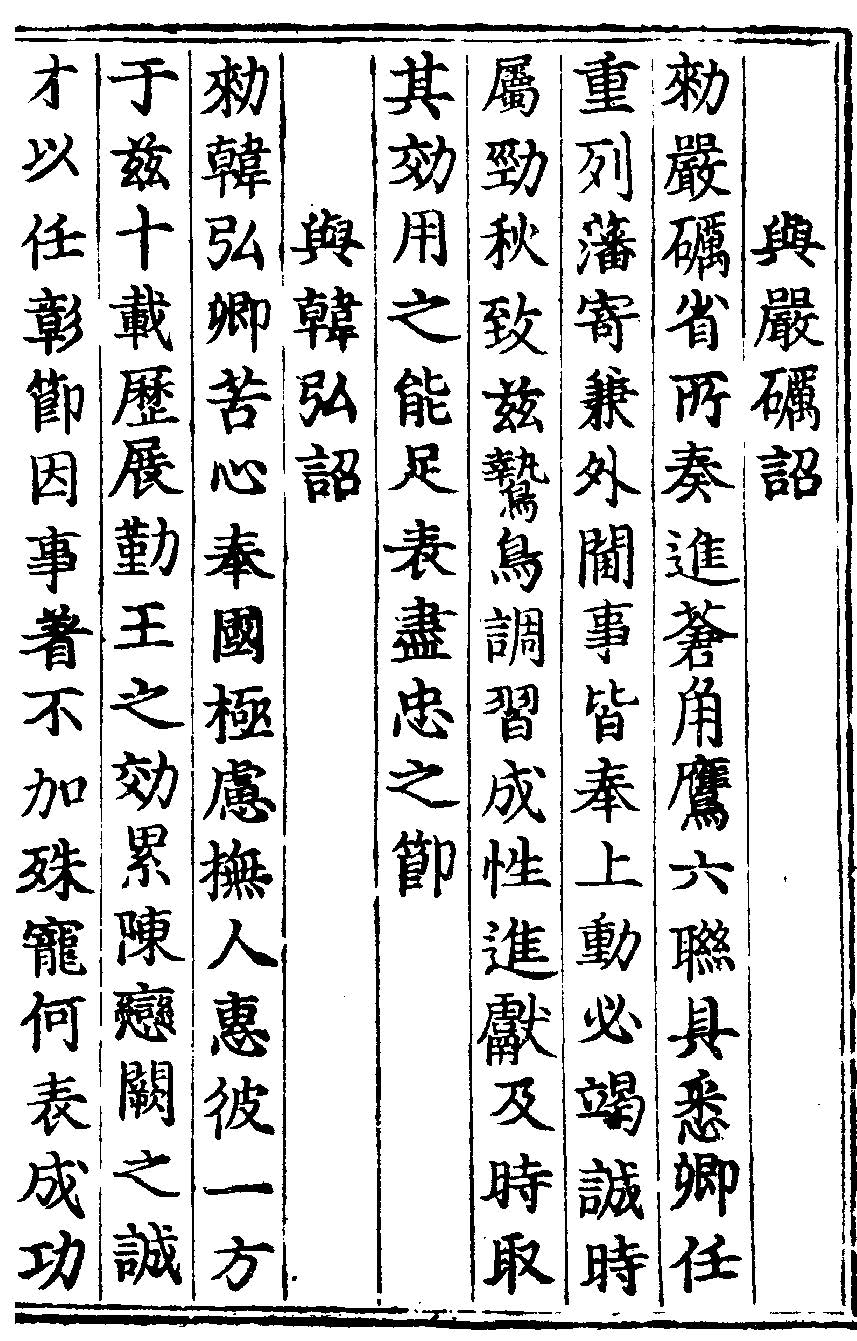 與嚴礪詔
勑嚴礪省所奏進蒼角鷹六聮具悉卿任
重列藩寄兼外閫事皆奉上動必竭誠時
屬勁秋致兹鷙鳥調習成性進獻及時取
其効用之能足表盡忠之節
與韓弘詔
勑韓弘卿苦心奉國極慮撫人惠彼一方
于兹十載歷展勤王之効累陳戀闕之誠
才以任彰節因事著不加殊寵何表成功